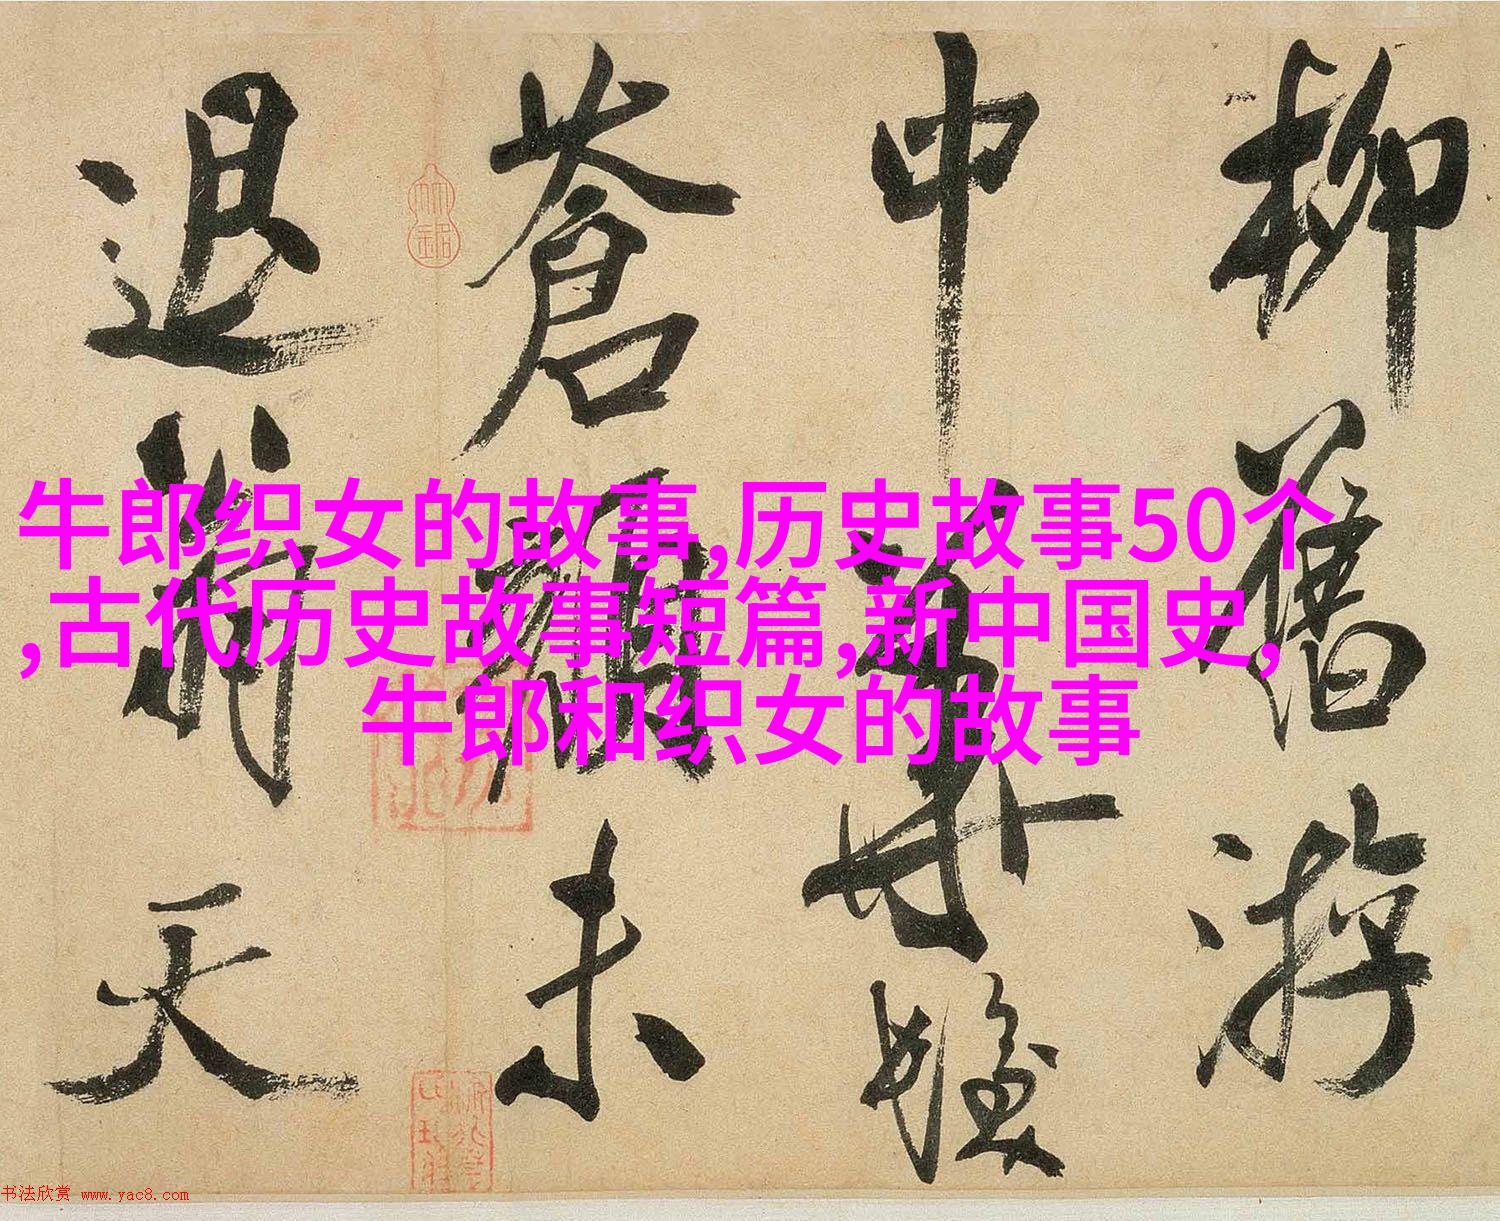 牛郎织女的故事,历史故事50个
,古代历史故事短篇,新中国史,
牛郎和织女的故事
柳舊游
中
蒼顏未
退
天
书法欣赏 www.yac8.com